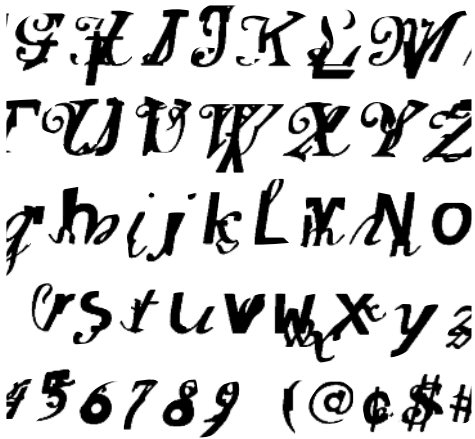 G H I J K L M
T U V W X Y Z
g h i j k L m N o
r s t u v w x y z
4 5 6 7 8 9 ( @ ¢ $ #